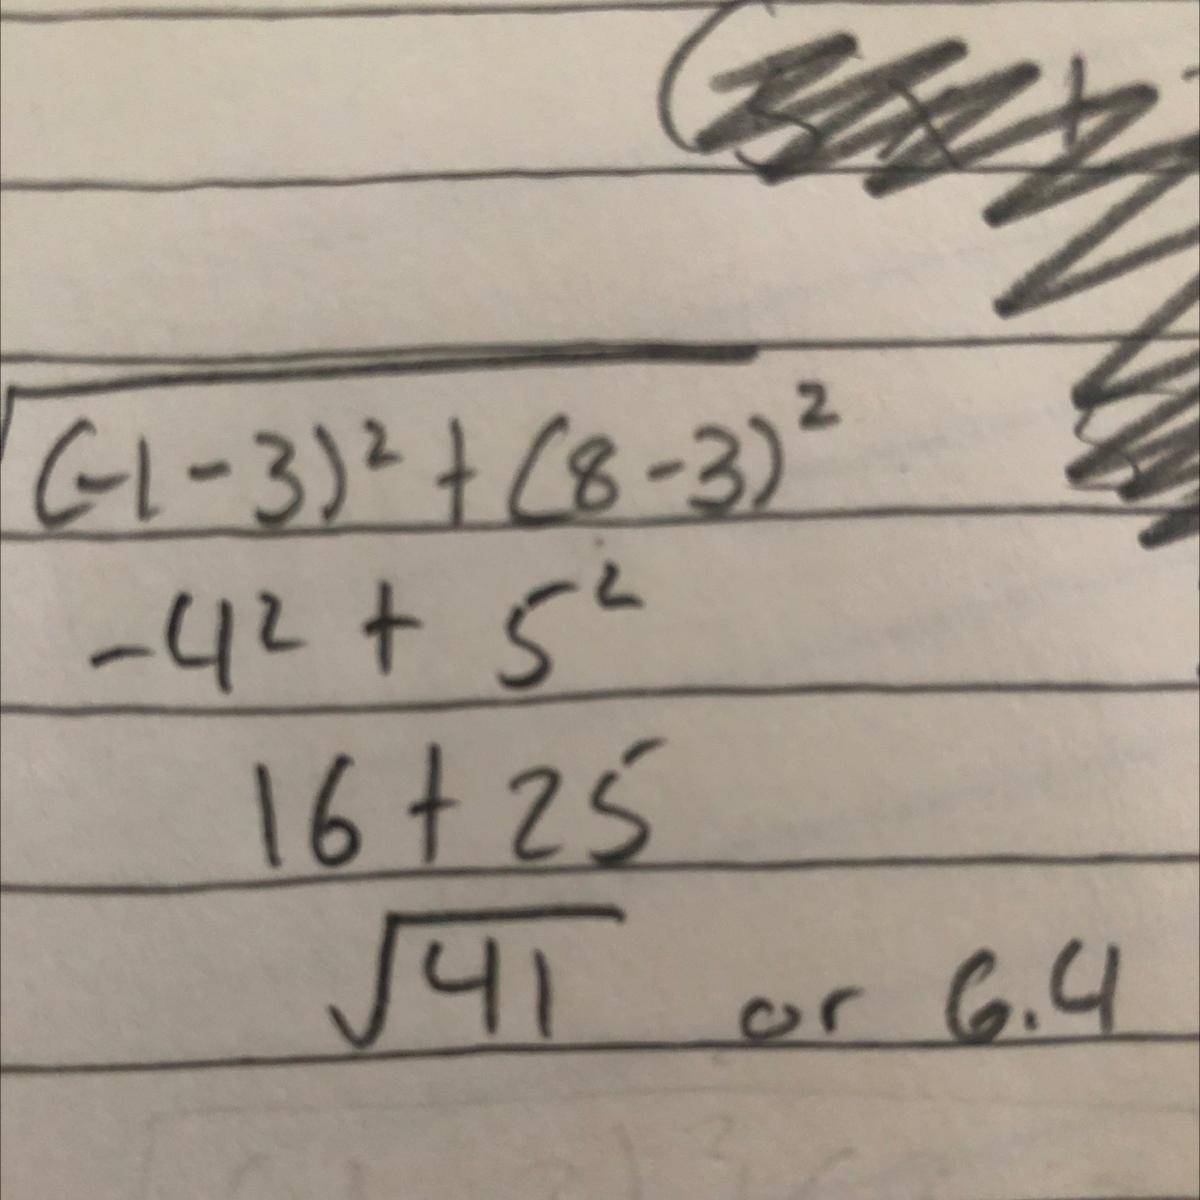 √(-1-3)² + (8-3)²
-4² + 5²
16 + 25
√41 or 6.4